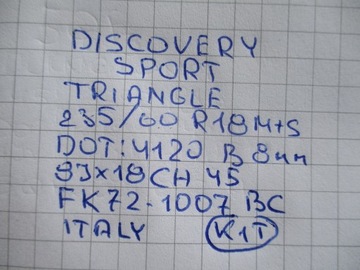 DISCOVERY
SPORT
TRIANGLE
235/60 R18 M+S
DOT: 4120 B 8mm
93x18CH 45
FK72-1007 BC
ITALY KIT